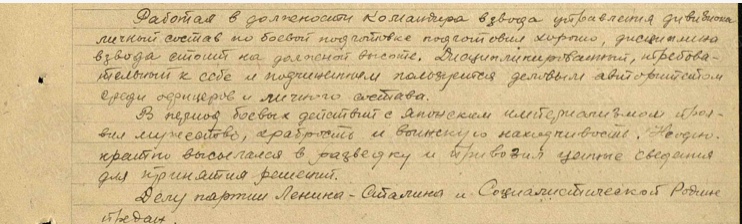 Работая в должности командира взвода управления дивизиона
личный состав по боевой подготовке подготовил хорошо, дисциплина
взвода стоит на должной высоте. Дисциплинированный, требова-
тельный к себе и подчиненным пользуется деловым авторитетом
среди офицеров и личного состава.
В период боевых действий с японским империализмом проя-
вил мужество, храбрость и воинскую находчивость. Неодно-
кратно высылался в разведку и привозил ценные сведения
для принятия решений.
Делу партии Ленина-Сталина и Социалистической Родине
предан.